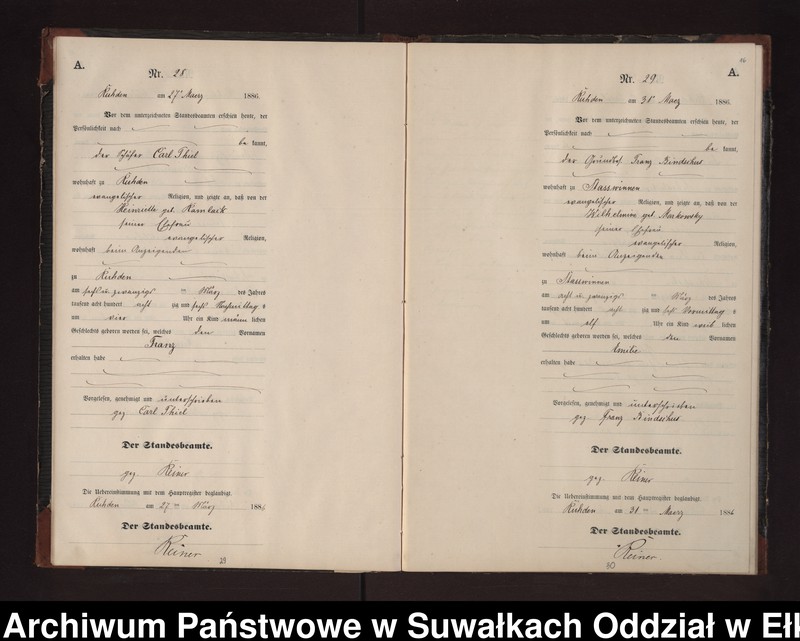 A.
Nr. 28
Rühden am 27ten Maerz 1886.
Vor dem unterzeichneten Standesbeamten erschien heute, der
Persönlichkeit nach
be kannt,
der Schäfer Carl Thiel
wohnhaft zu Rühden
evangelischer Religion, und zeigte an, daß von der
Henriette geb.
seiner Ehefrau
evangelischer Religion,
wohnhaft beim Anzeigenden
zu Rühden
am sechs u. zwanzigs ten März des Jahres
tausend acht hundert acht zig und sechs Nachmittag s
um vier Uhr ein Kind männ lichen
Geschlechts geboren worden sei, welches den Vornamen
Franz
erhalten habe
Vorgelesen, genehmigt und unterschrieben
gez. Carl Thiel
Der Standesbeamte.
gez. Reiner
Die Uebereinstimmung mit dem Hauptregister beglaubigt.
Rühden am 27 ten März 1886
Der Standesbeamte.
Reiner
29
16
A.
Nr. 29
Rühden am 31ten Maerz 1886.
Vor dem unterzeichneten Standesbeamten erschien heute, der
Persönlichkeit nach
be kannt,
der Franz
wohnhaft zu Stasswinnen
evangelischer Religion, und zeigte an, daß von der
Wilhelmine geb. Markowsky
seiner Ehefrau
evangelischer Religion,
wohnhaft beim Anzeigenden
zu Stasswinnen
am acht u. zwanzigs ten März des Jahres
tausend acht hundert acht zig und sechs Vormittag s
um elf Uhr ein Kind weib lichen
Geschlechts geboren worden sei, welches den Vornamen
Emilie
erhalten habe
Vorgelesen, genehmigt und unterschrieben
gez. Franz
Der Standesbeamte.
gez. Reiner
Die Uebereinstimmung mit dem Hauptregister beglaubigt.
Rühden am 31 ten Maerz 1886
Der Standesbeamte.
Reiner.
30
Archiwum Państwowe w Suwałkach Oddział w Eł